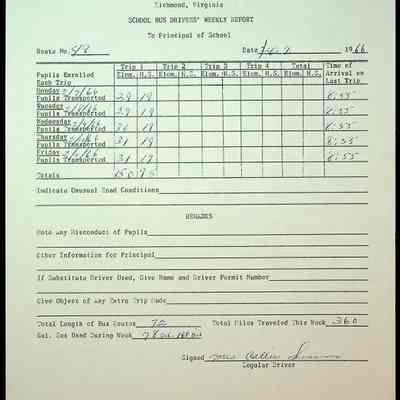 Richmond, Virginia
SCHOOL BUS DRIVERS' WEEKLY REPORT
To Principal of School
Route No. 98 Date 1966
Trip 1 Trip 2 Trip 3 Trip 4 Total Time of Arrival on Last Trip
Pupils Enrolled Each Trip Elem. H.S. Elem. H.C. Elem. H.S. Elem. H.S. Elem. H.S.
Monday 2/7/66
Pupils Transported 29 19 8:55
Tuesday
Pupils Transported 29 19 8:55
Wednesday
Pupils Transported 18 8:55
Thursday
Pupils Transported 31 19 8:55
Friday
Pupils Transported 31 19 8:55
Totals 150 95
Indicate Unusual Road Conditions
REMARKS
Note Any Misconduct of Pupils
Other Information for Principal
If Substitute Driver Used, Give Name and Driver Permit Number
Give Object of Any Extra Trip Made
Total Length of Bus Routes 72 Total Miles Traveled This Week 360
Gal. Gas Used During Week 78
Signed
Regular Driver